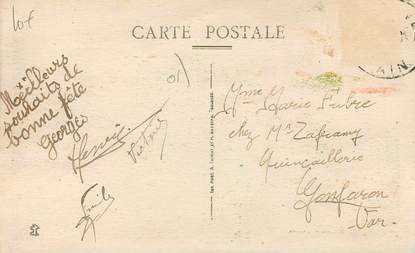 10f
CARTE POSTALE
01
Meilleurs
souhaits de
bonne fête
Georges
Henri
Victorine
Emile
Mme Marie Fabre
chez Mr
Quincaillerie
Gonfaron
Var.